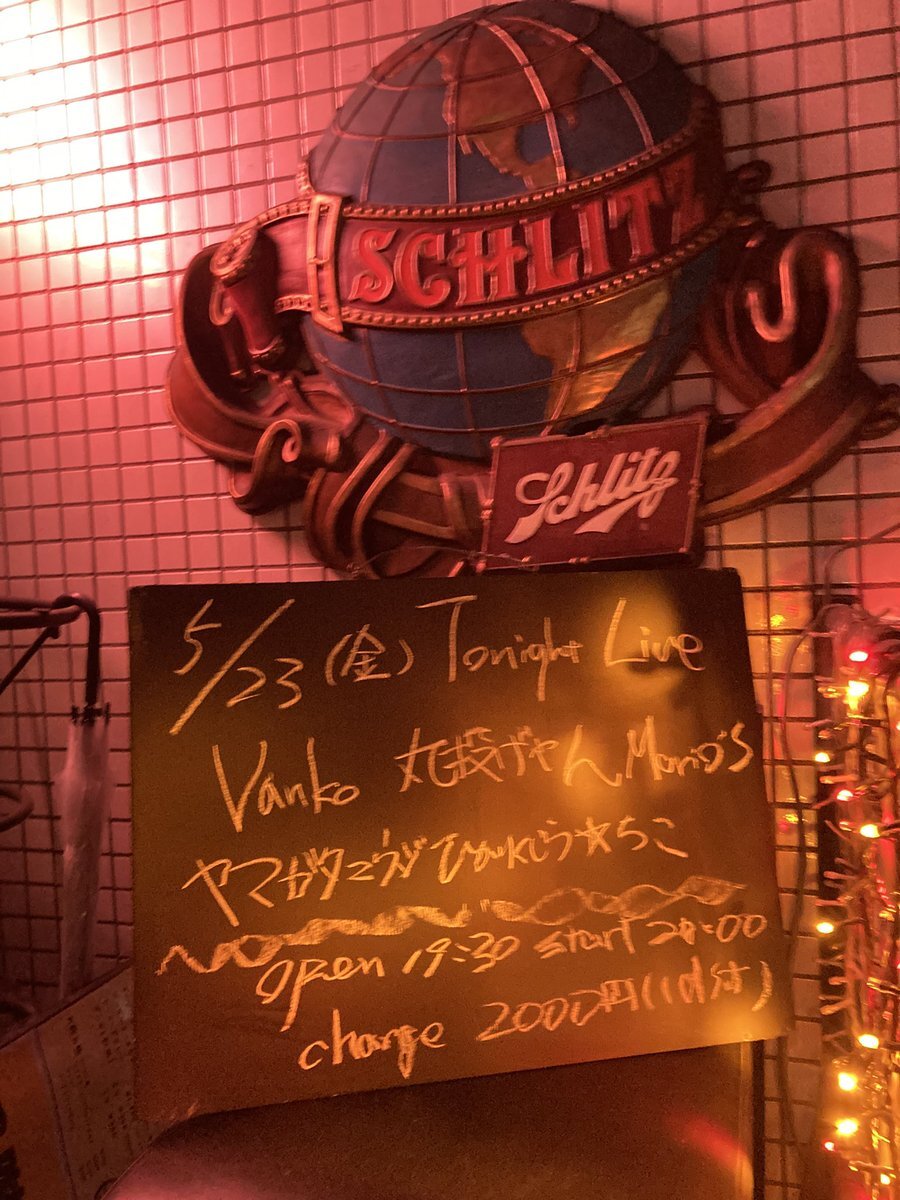 SCHLITZ
Schlitz
5/23(金) Tonight Live
Vanko 丸投げやん Morio's
ヤマガタこうが ひかしょう★ちこ
open 19:30 start 20:00
charge 2000円(1d付)